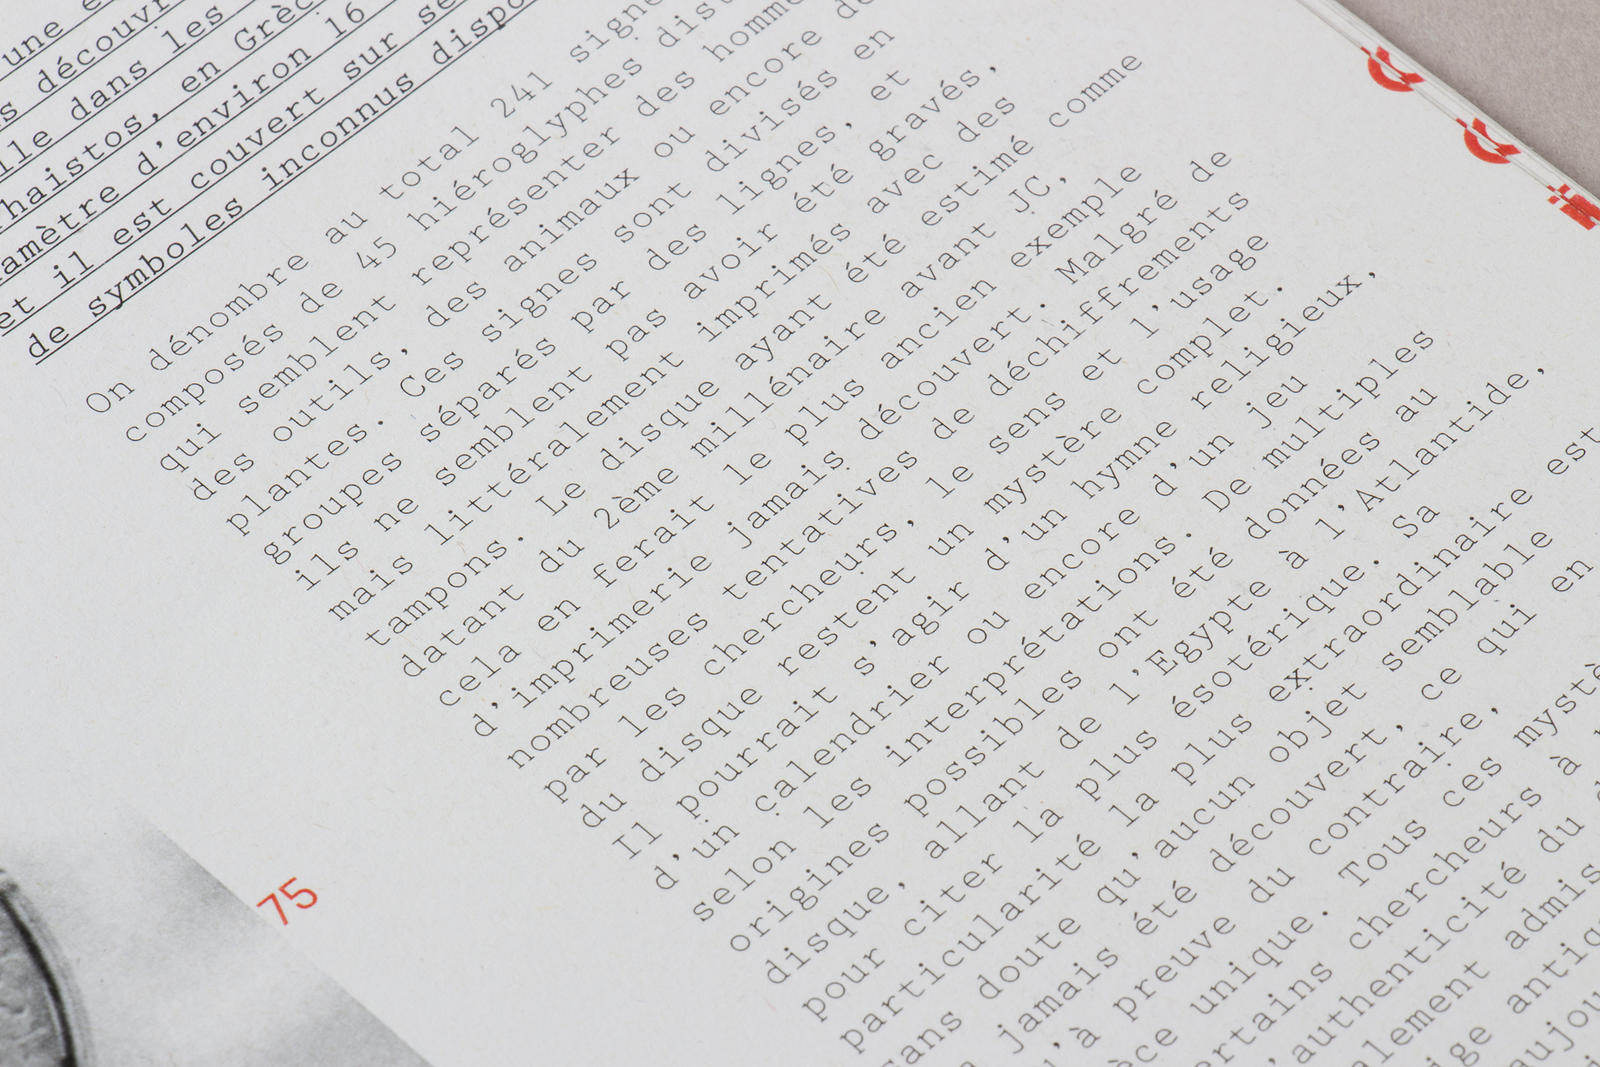 une
découvr
lle dans les
haistos, en Grèc
amètre d'environ 16
et il est couvert sur se
de symboles inconnus dispo
On dénombre au total 241 signe
composés de 45 hiéroglyphes dist
qui semblent représenter des homme
des outils, des animaux ou encore de
plantes. Ces signes sont divisés en
groupes séparés par des lignes, et
ils ne semblent pas avoir été gravés,
mais littéralement imprimés avec des
tampons. Le disque ayant été estimé comme
datant du 2ème millénaire avant JC,
cela en ferait le plus ancien exemple
d'imprimerie jamais découvert. Malgré de
nombreuses tentatives de déchiffrements
par les chercheurs, le sens et l'usage
du disque restent un mystère complet.
Il pourrait s'agir d'un hymne religieux,
d'un calendrier ou encore d'un jeu
selon les interprétations. De multiples
origines possibles ont été données au
disque, allant de l'Egypte à l'Atlantide,
pour citer la plus ésotérique. Sa
particularité la plus extraordinaire est
sans doute qu'aucun objet semblable
jamais été découvert, ce qui en
u'à preuve du contraire,
èce unique. Tous ces mystè
ertains chercheurs à
'authenticité du
alement admis
ige antiq
aujou
75